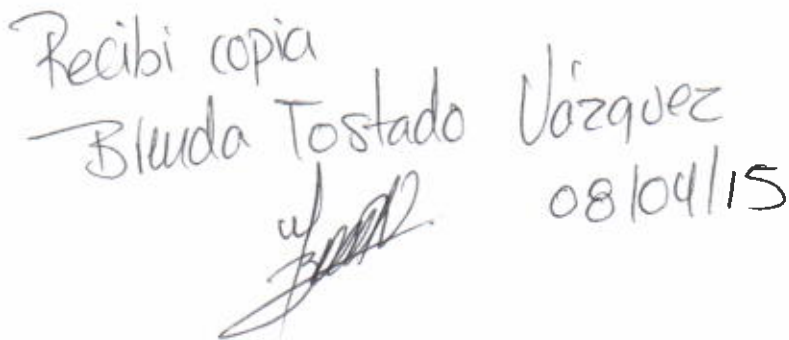 Recibi copia
Blenda Tostado Vázquez
08/04/15